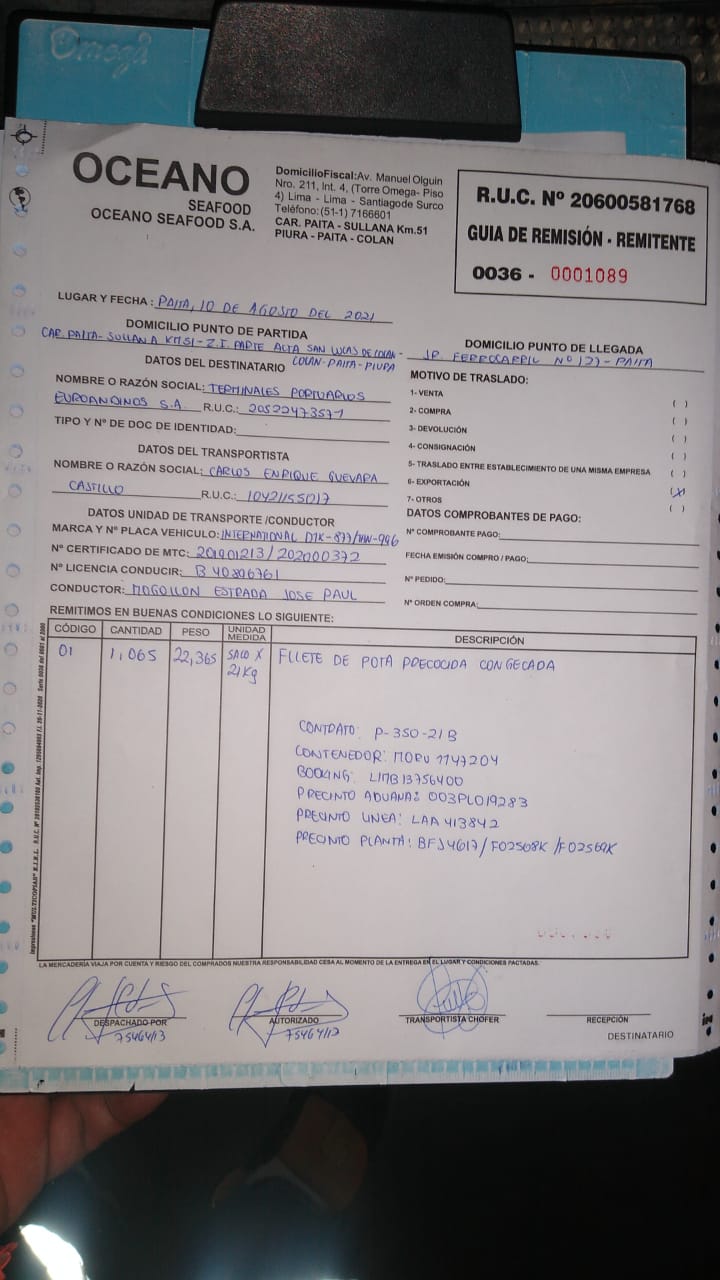 Omega
OCEANO
SEAFOOD
OCEANO SEAFOOD S.A.
DomicilioFiscal:Av. Manuel Olguin
Nro. 211, Int. 4, (Torre Omega- Piso
4) Lima - Lima - Santiagode Surco
Teléfono:(51-1) 7166601
CAR. PAITA - SULLANA Km.51
PIURA - PAITA - COLAN
R.U.C. Nº 20600581768
GUIA DE REMISIÓN - REMITENTE
0036 - 0001089
LUGAR Y FECHA : PAITA, 10 DE AGOSTO DEL 2021
DOMICILIO PUNTO DE PARTIDA
CAR. PAITA- SULLANA KM51- Z.I. PARTE ALTA SAN LUCAS DE COLAN -
COLAN-PAITA-PIURA
DOMICILIO PUNTO DE LLEGADA
JR. FERROCARRIL Nº 127 - PAITA
DATOS DEL DESTINATARIO
NOMBRE O RAZÓN SOCIAL: TERMINALES PORTUARIOS
EUROANDINOS S.A. R.U.C.: 20522473571
TIPO Y Nº DE DOC DE IDENTIDAD:
DATOS DEL TRANSPORTISTA
NOMBRE O RAZÓN SOCIAL: CARLOS ENRIQUE GUEVARA
CASTILLO R.U.C.: 10421155017
DATOS UNIDAD DE TRANSPORTE /CONDUCTOR
MARCA Y Nº PLACA VEHICULO: INTERNATIONAL
Nº CERTIFICADO DE MTC: 201901213 / 202000372
Nº LICENCIA CONDUCIR: B 40896761
CONDUCTOR: MOGOLLON ESTRADA JOSE PAUL
MOTIVO DE TRASLADO:
1- VENTA ( )
2- COMPRA ( )
3- DEVOLUCIÓN ( )
4- CONSIGNACIÓN ( )
5- TRASLADO ENTRE ESTABLECIMIENTO DE UNA MISMA EMPRESA ( )
6- EXPORTACIÓN (X)
7- OTROS ( )
DATOS COMPROBANTES DE PAGO:
Nº COMPROBANTE PAGO:
FECHA EMISIÓN COMPRO / PAGO:
Nº PEDIDO:
Nº ORDEN COMPRA:
REMITIMOS EN BUENAS CONDICIONES LO SIGUIENTE:
CÓDIGO CANTIDAD PESO UNIDAD MEDIDA DESCRIPCIÓN
01 1,065 22,365 SACO X 21Kg FILETE DE POTA PRECOCIDA CONGELADA
CONTRATO: P-350-21B
CONTENEDOR: MORU 1147204
BOOKING: LIMB13756400
PRECINTO ADUANA: 003PL019283
PRECINTO LINEA: LAA 413842
PRECINTO PLANTA: BFJ4617 / F02568K / F02569K
LA MERCADERÍA VIAJA POR CUENTA Y RIESGO DEL COMPRADOS NUESTRA RESPONSABILIDAD CESA AL MOMENTO DE LA ENTREGA EN EL LUGAR Y CONDICIONES PACTADAS.
DESPACHADO POR AUTORIZADO TRANSPORTISTA CHOFER RECEPCIÓN
75464113 75464113
DESTINATARIO